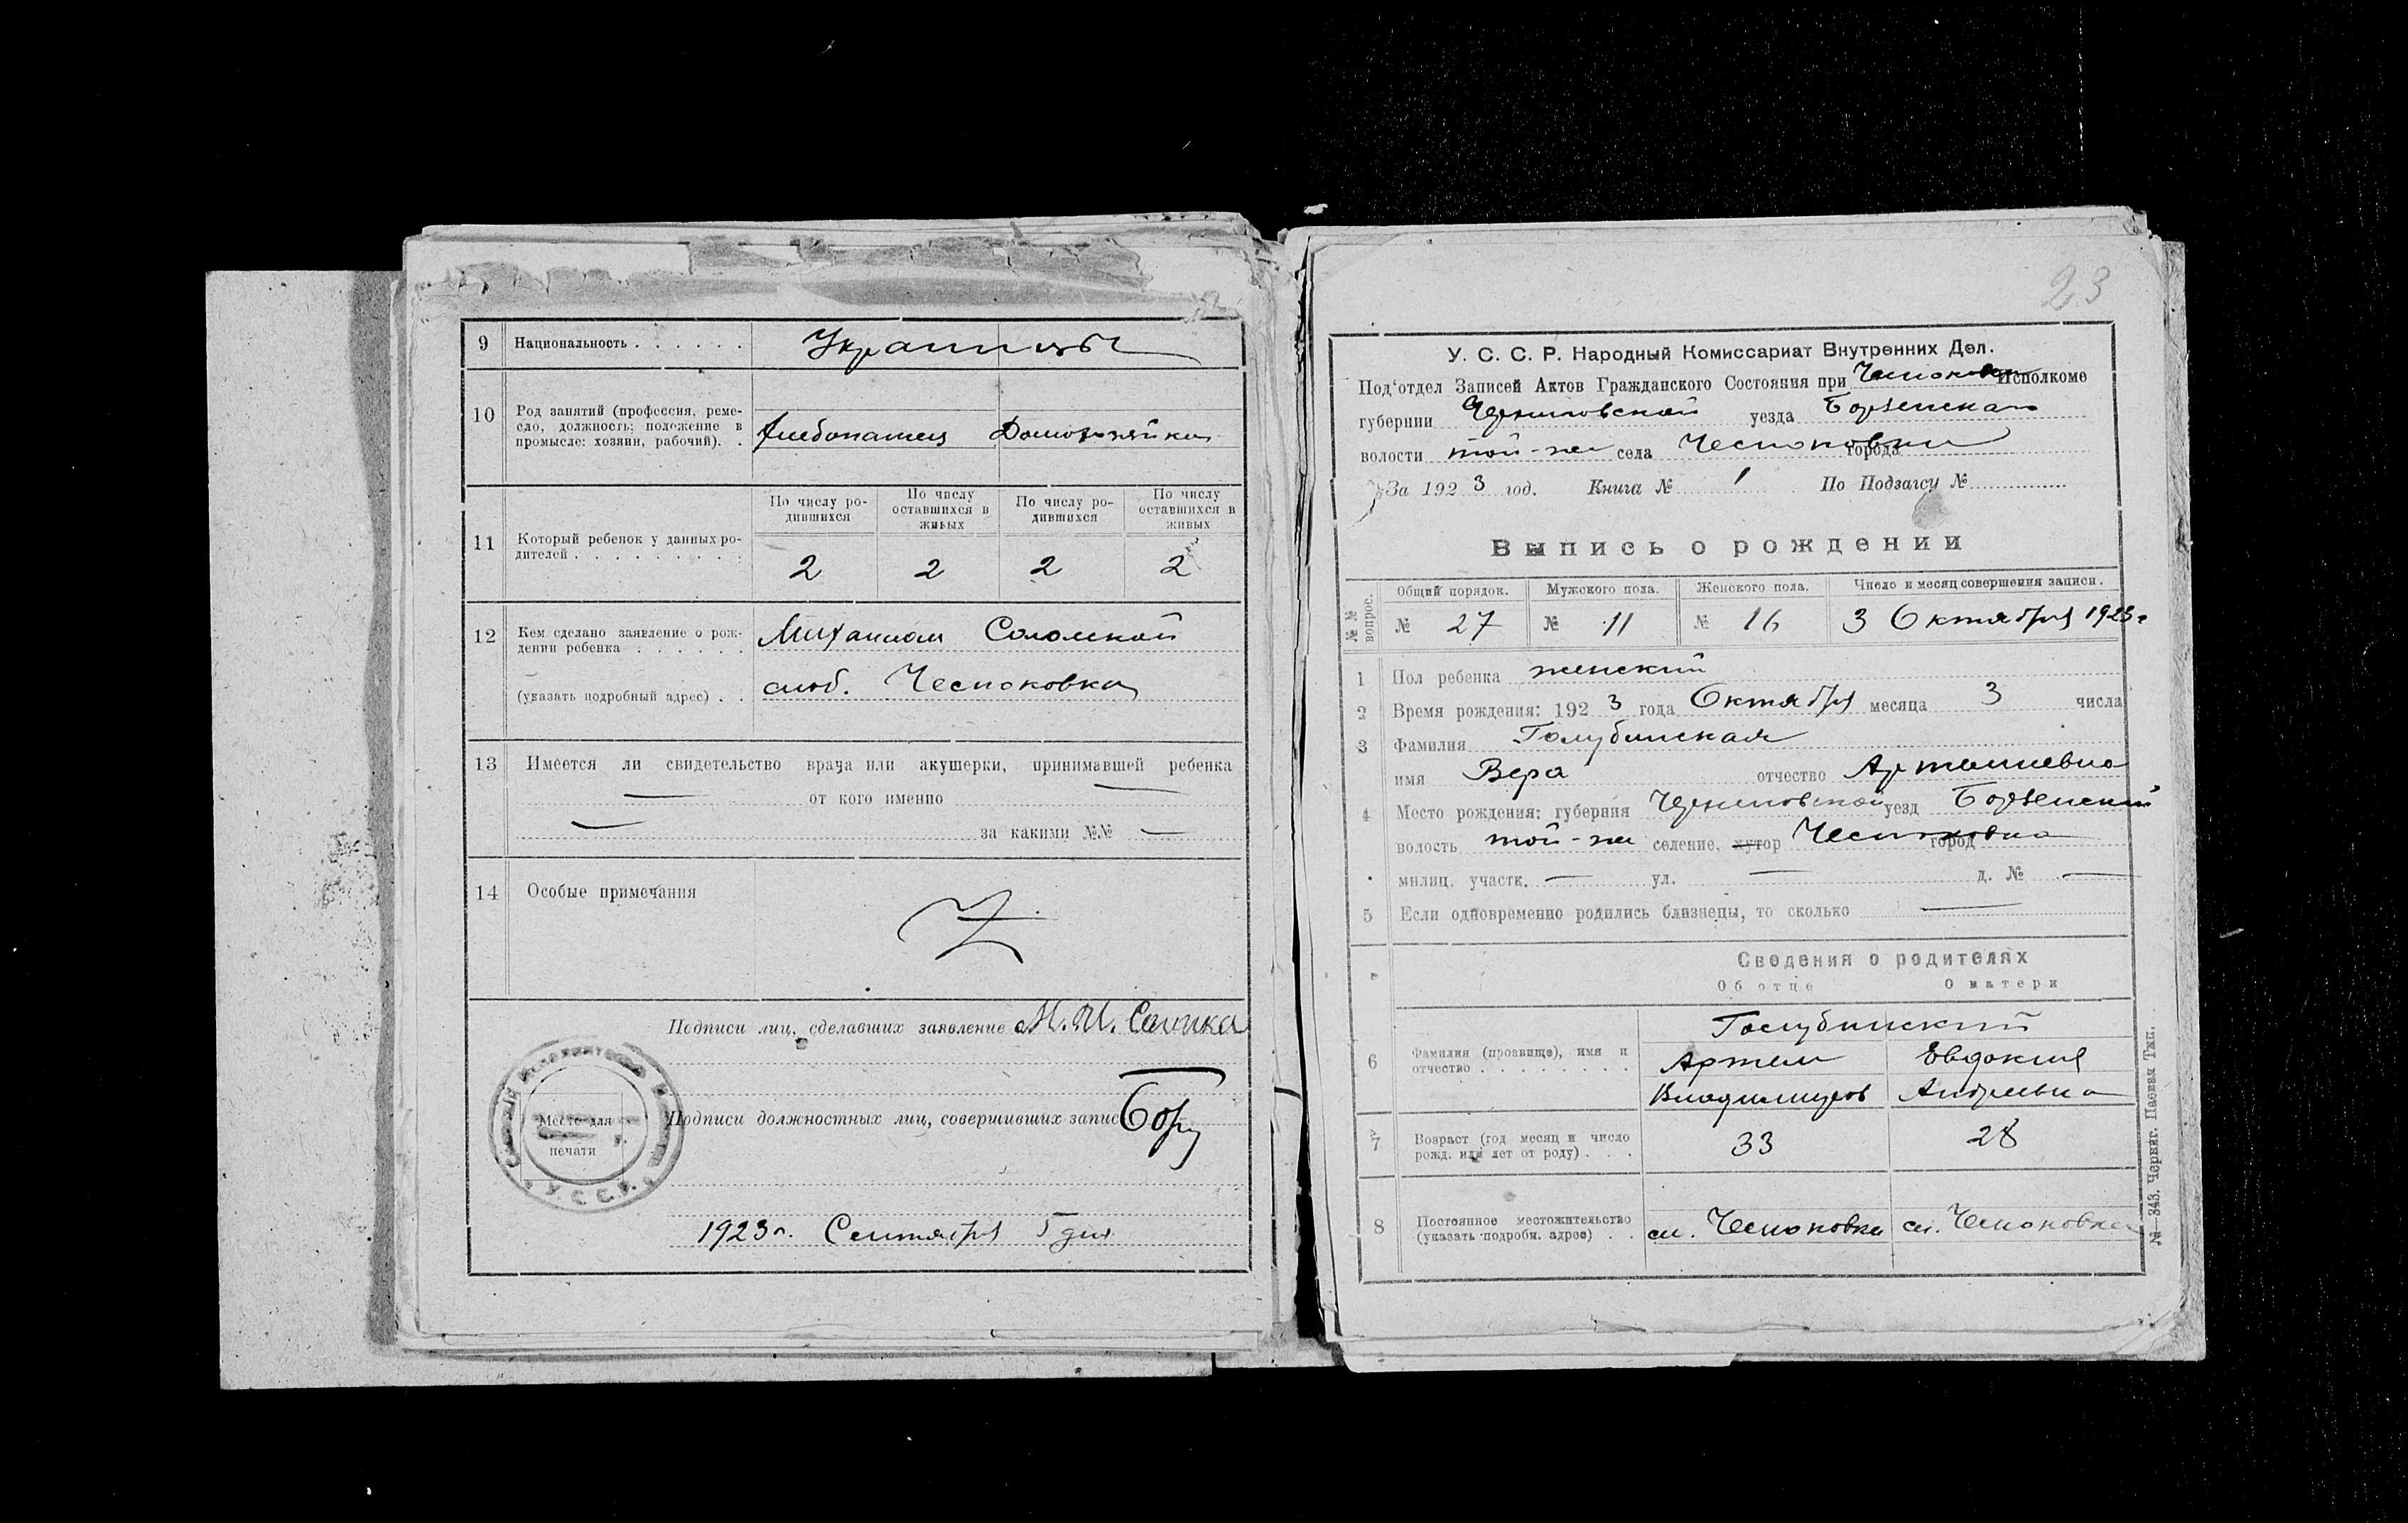 9 Национальность . . . . . . Украинцы
10 Род занятий (профессия, реме-
сло, должность; положение в
промысле: хозяин, рабочий). . Хлебопашец Домохозяйка
11 Который ребенок у данных ро-
дителей . . . . . . . . .
По числу ро-
дившихся
По числу
оставшихся в
живых
По числу ро-
дившихся
По числу
оставшихся в
живых
2 2 2 2
12 Кем сделано заявление о рож-
дении ребенка . . . . . . Михаилом
(указать подробный адрес) . . слоб. Чесноковка
13 Имеется ли свидетельство врача или акушерки, принимавшей ребенка
— от кого именно —
— за какими №№ —
14 Особые примечания
Подписи лиц, сделавших заявление М. И.
Место для
печати
У.С.С.Р.
Подписи должностных лиц, совершивших запис
1923 г. Сентября 5 дня
23
У. С. С. Р. Народный Комиссариат Внутренних Дел.
Под‘отдел Записей Актов Гражданского Состояния при Чесноков Исполкоме
губернии Черниговской уезда Борзенского
волости той-же села Чесноковки города
За 1923 год. Книга № 1 По Подзагсу №
Выпись о рождении
№№ вопрос.
Общий порядок. Мужского пола. Женского пола. Число и месяц совершения записи.
№ 27 № 11 № 16 3 Октября 1923 г
1 Пол ребенка женский
2 Время рождения: 1923 года Октября месяца 3 числа
3 Фамилия Голубинская
имя Вера отчество Артемиевна
4 Место рождения: губерния Черниговской уезд Борзенский
волость той-же селение, хутор Чесноковка город
милиц. участк. — ул. — д. № —
5 Если одновременно родились близнецы, то сколько —
Сведения о родителях
Об отце О матери
Голубинский
6 Фамилия (прозвище), имя и
отчество . . . . . . . . Артем Евдокия
Владимиров Андреевна
7 Возраст (год месяц и число
рожд. или лет от роду) . . . 33 28
8 Постоянное местожительство
(указать подробн. адрес) . . сл. Чесноковка сл. Чесноковка
№—343. Черниг. Паевая Тип.